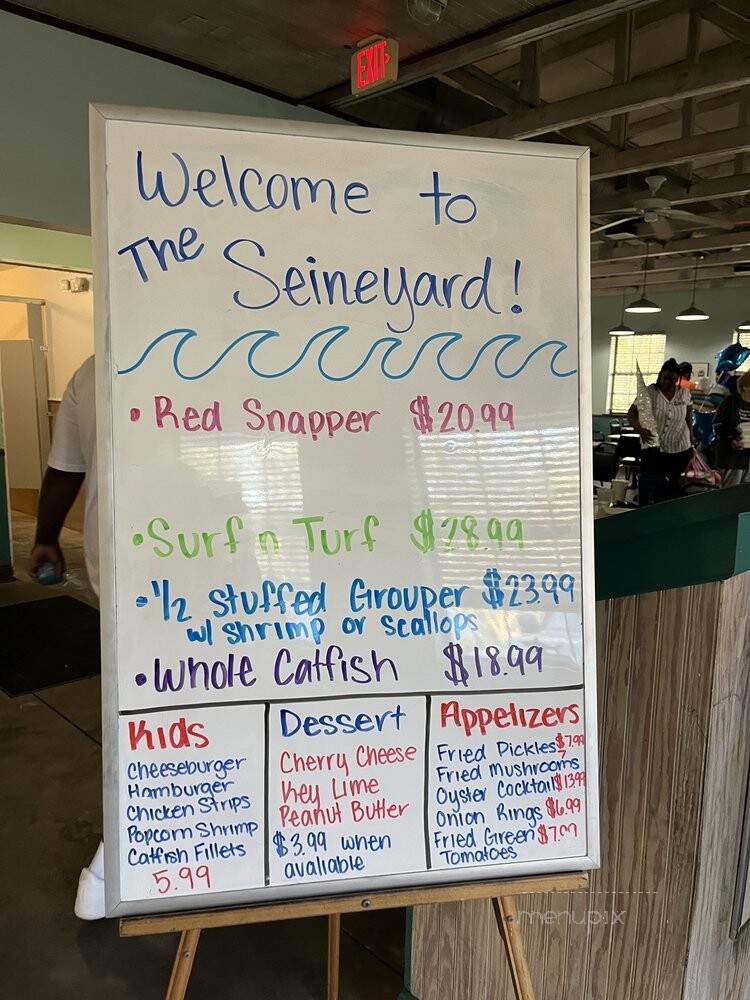 EXIT
Welcome to
The Seineyard!
• Red Snapper $20.99
• Surf n Turf $28.99
• 1/2 stuffed Grouper $23.99
w/ shrimp or scallops
• Whole Catfish $18.99
Kids
Cheeseburger
Hamburger
Chicken Strips
Popcorn Shrimp
Catfish Fillets
5.99
Dessert
Cherry Cheese
Key Lime
Peanut Butter
$3.99 when
avaliable
Appetizers
Fried Pickles $7.99
Fried Mushrooms
Oyster Cocktail $13.99
Onion Rings $6.99
Fried Green $7.99
Tomatoes
menupix